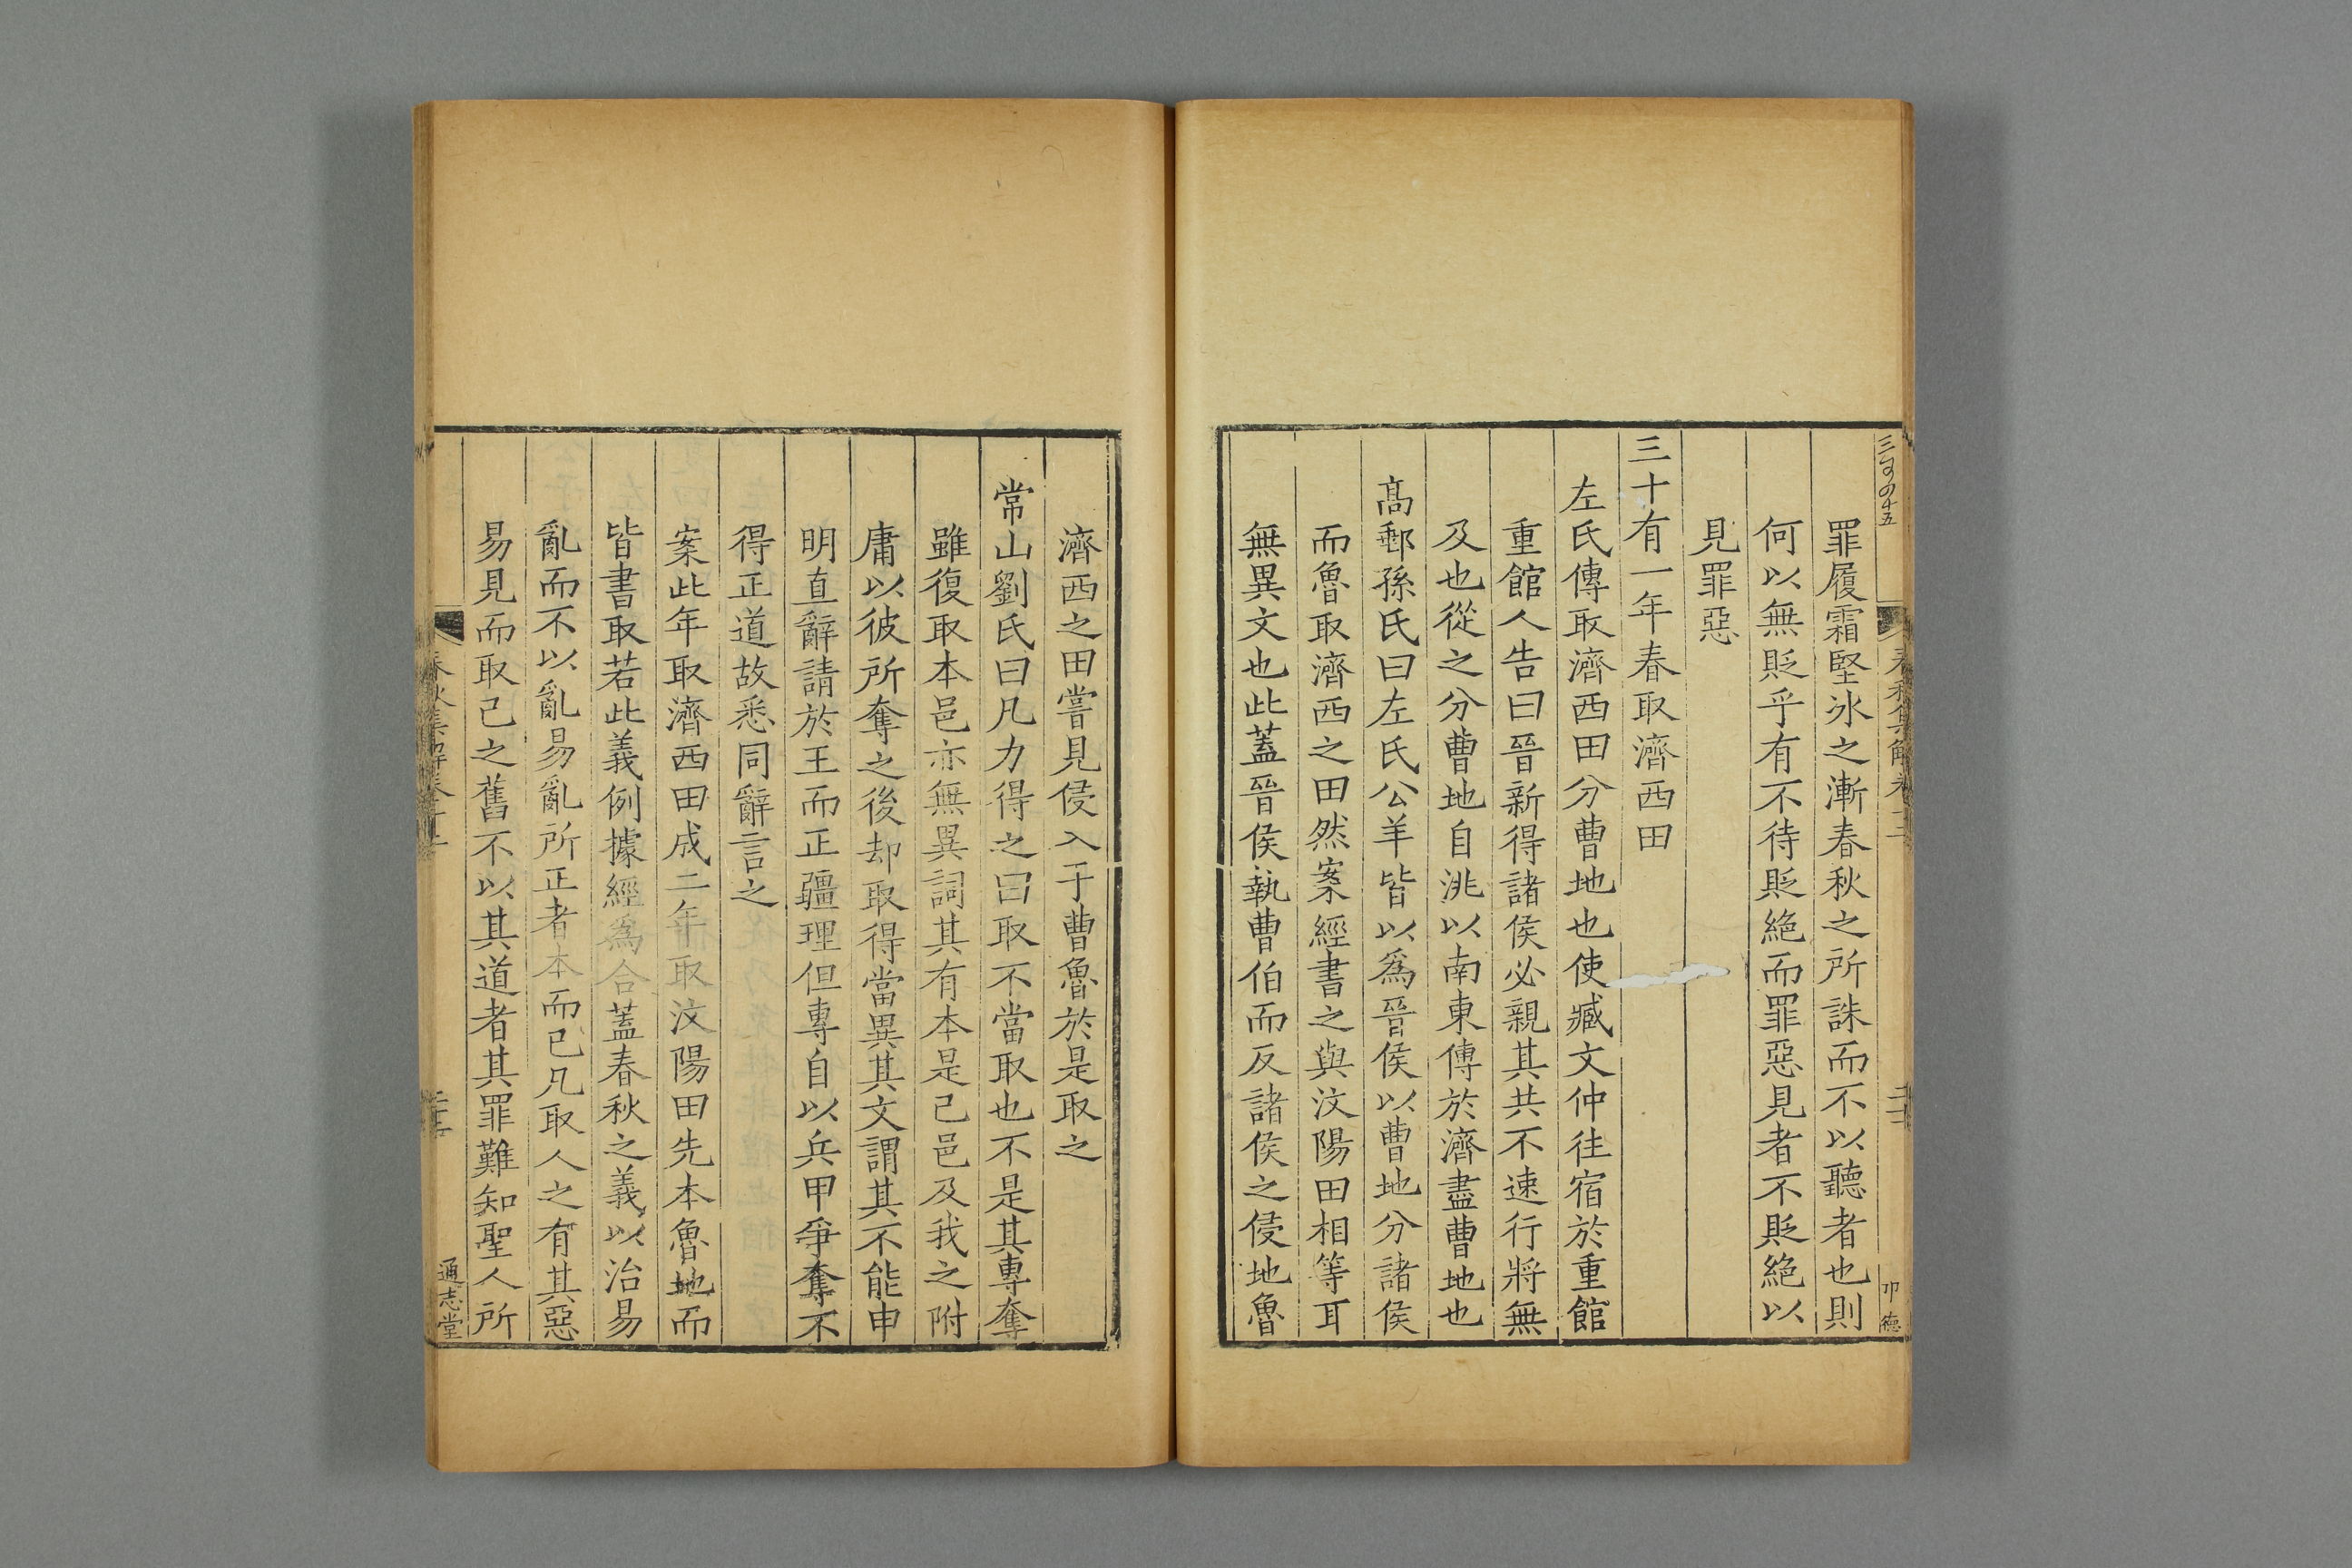 罪履霜堅冰之漸春秋之所誅而不以聽者也則
何以無貶乎有不待貶絶而罪惡見者不貶絶以
見罪惡
三十有一年春取濟西田
左氏傳取濟西田分曹地也使臧文仲往宿於重館
重館人告曰晉新得諸侯必親其共不速行將無
及也從之分曹地自洮以南東傳於濟盡曹地也
髙郵孫氏曰左氏公羊皆以爲晉侯以曹地分諸侯
而魯取濟西之田然案經書之與汶陽田相等耳
無異文也此蓋晉侯執曹伯而反諸侯之侵地魯
濟西之田嘗見侵入于曹魯於是取之
常山劉氏曰凡力得之曰取不當取也不是其專奪
雖復取本邑亦無異詞其有本是己邑及我之附
庸以彼所奪之後却取得當異其文謂其不能申
明直辭請於王而正疆理但專自以兵甲爭奪不
得正道故悉同辭言之
案此年取濟西田成二年取汶陽田先本魯地而
皆書取若此義例據經爲合蓋春秋之義以治易
亂而不以亂易亂所正者本而已凡取人之有其惡
易見而取己之舊不以其道者其罪難知聖人所
春秋集解卷十二
通志堂